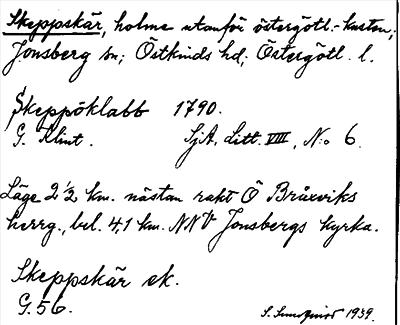 Skeppskär, holme utanför östergötl.-kusten;
Jonsberg sn; Östkinds hd; Östergötl. l.
Skeppöklabb 1790.
G. Klint. SjA, Litt. VIII, No 6.
Läge 2 1/2 km. nästan rakt Ö Bråxviks
herrg., bel. 4,1 km. NNV Jonsbergs kyrka.
Skeppskär ek.
G. 56. S. 1939.